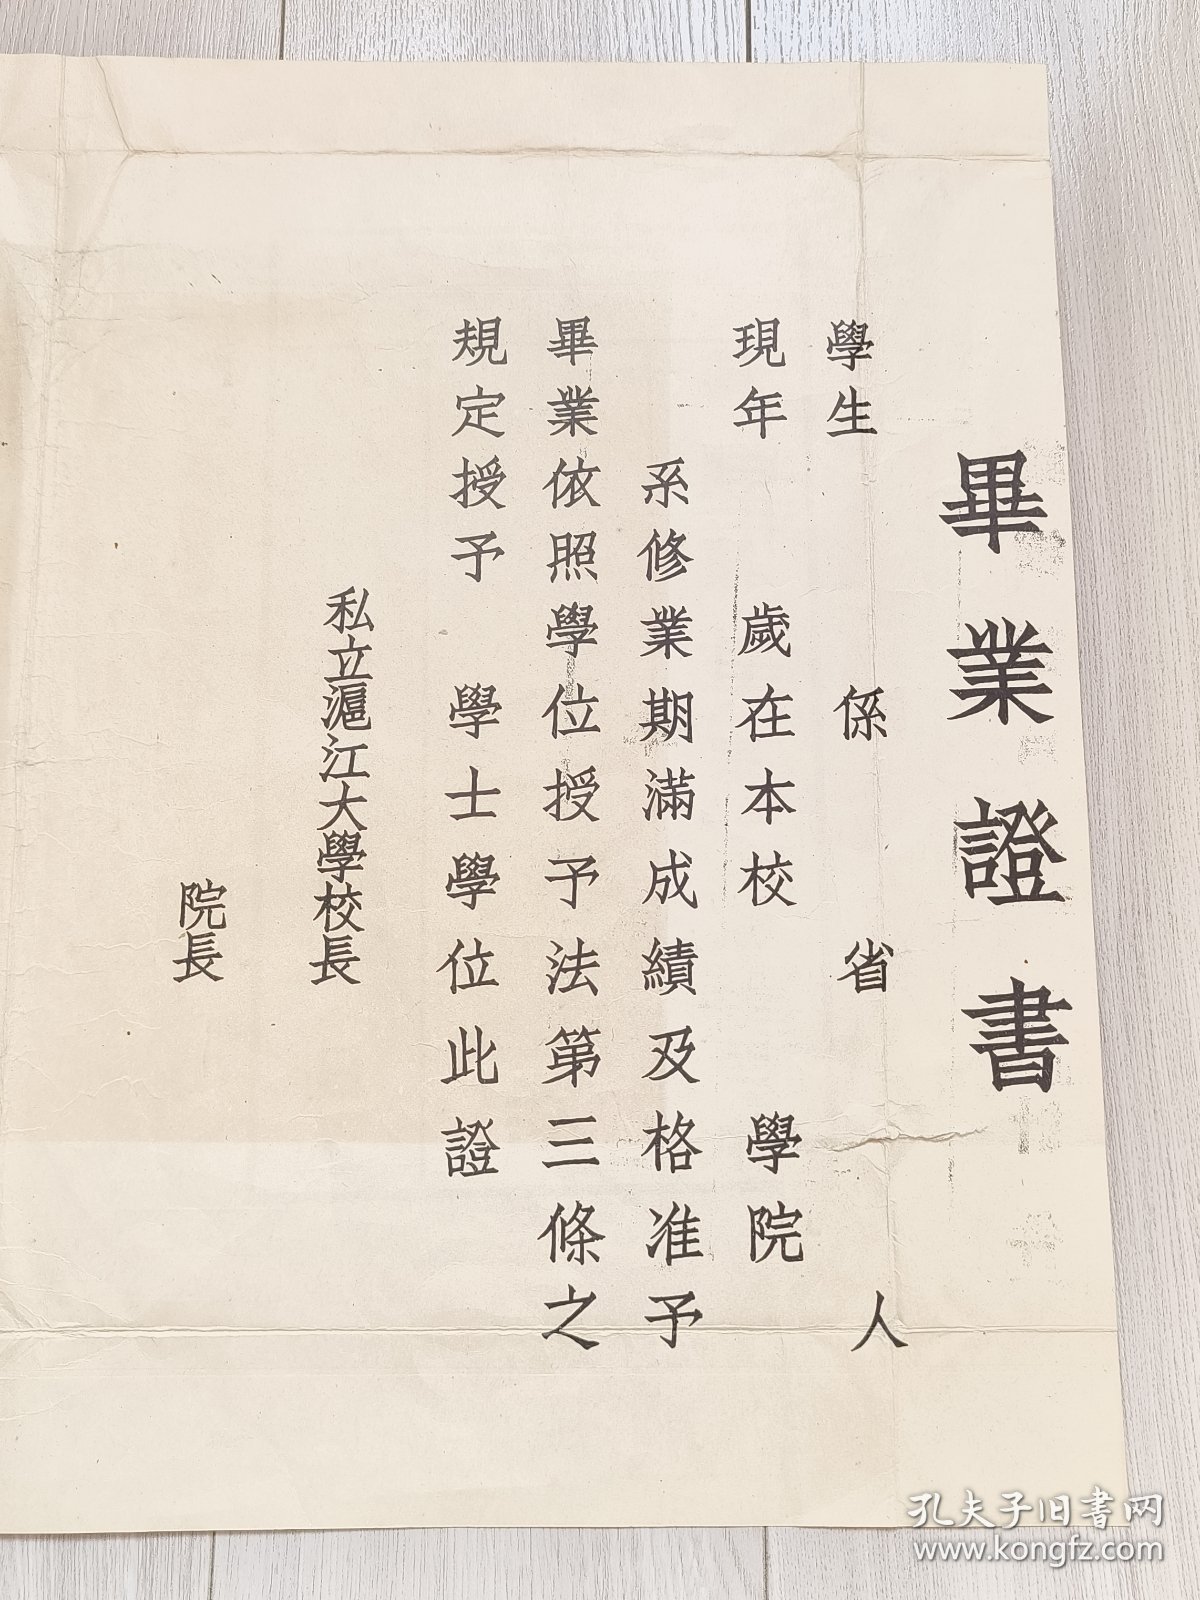 畢業證書
學生 係 省 人
現年 歲在本校 學院
系修業期滿成績及格准予
畢業依照學位授予法第三條之
規定授予 學士學位此證
私立滬江大學校長
院長
孔夫子旧書网
www.kongfz.com